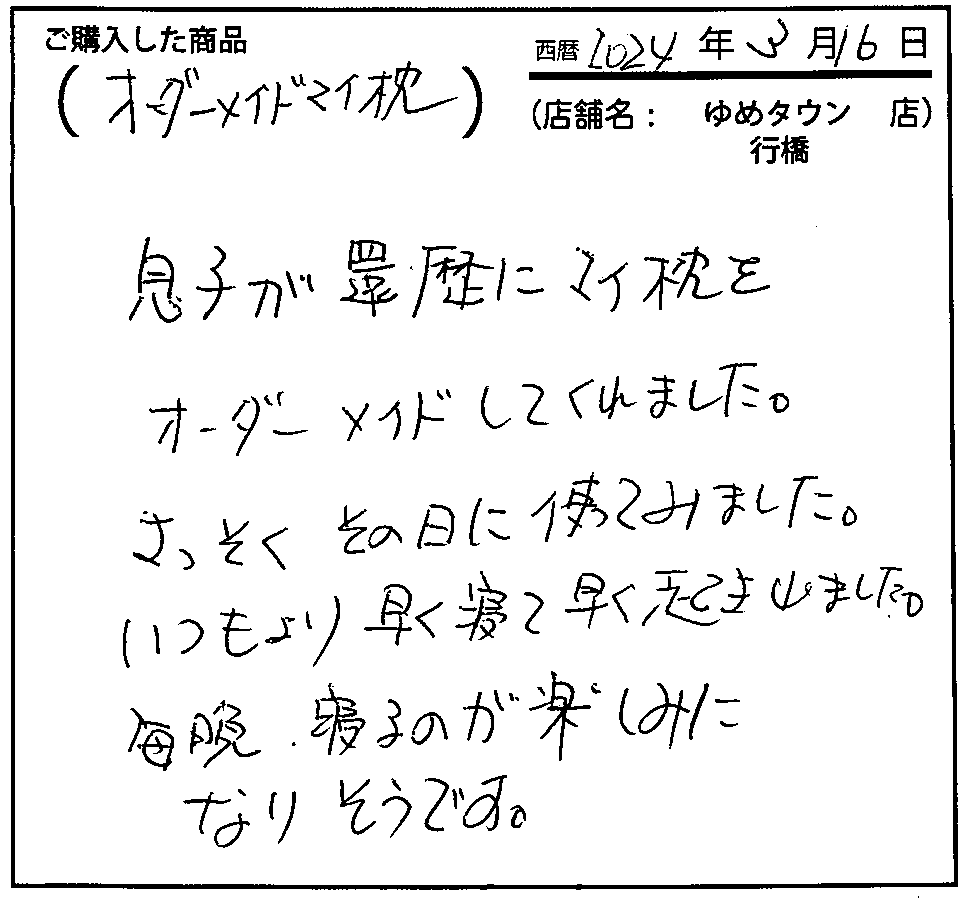 ご購入した商品
(オーダーメイドマイ枕)
西暦 2024 年 3 月 16 日
(店舗名： ゆめタウン 店)
行橋
息子が還暦にマイ枕を
オーダーメイドしてくれました。
さっそく その日に使ってみました。
いつもより早く寝て早く起き出ました。
毎晩、寝るのが楽しみに
なりそうです。